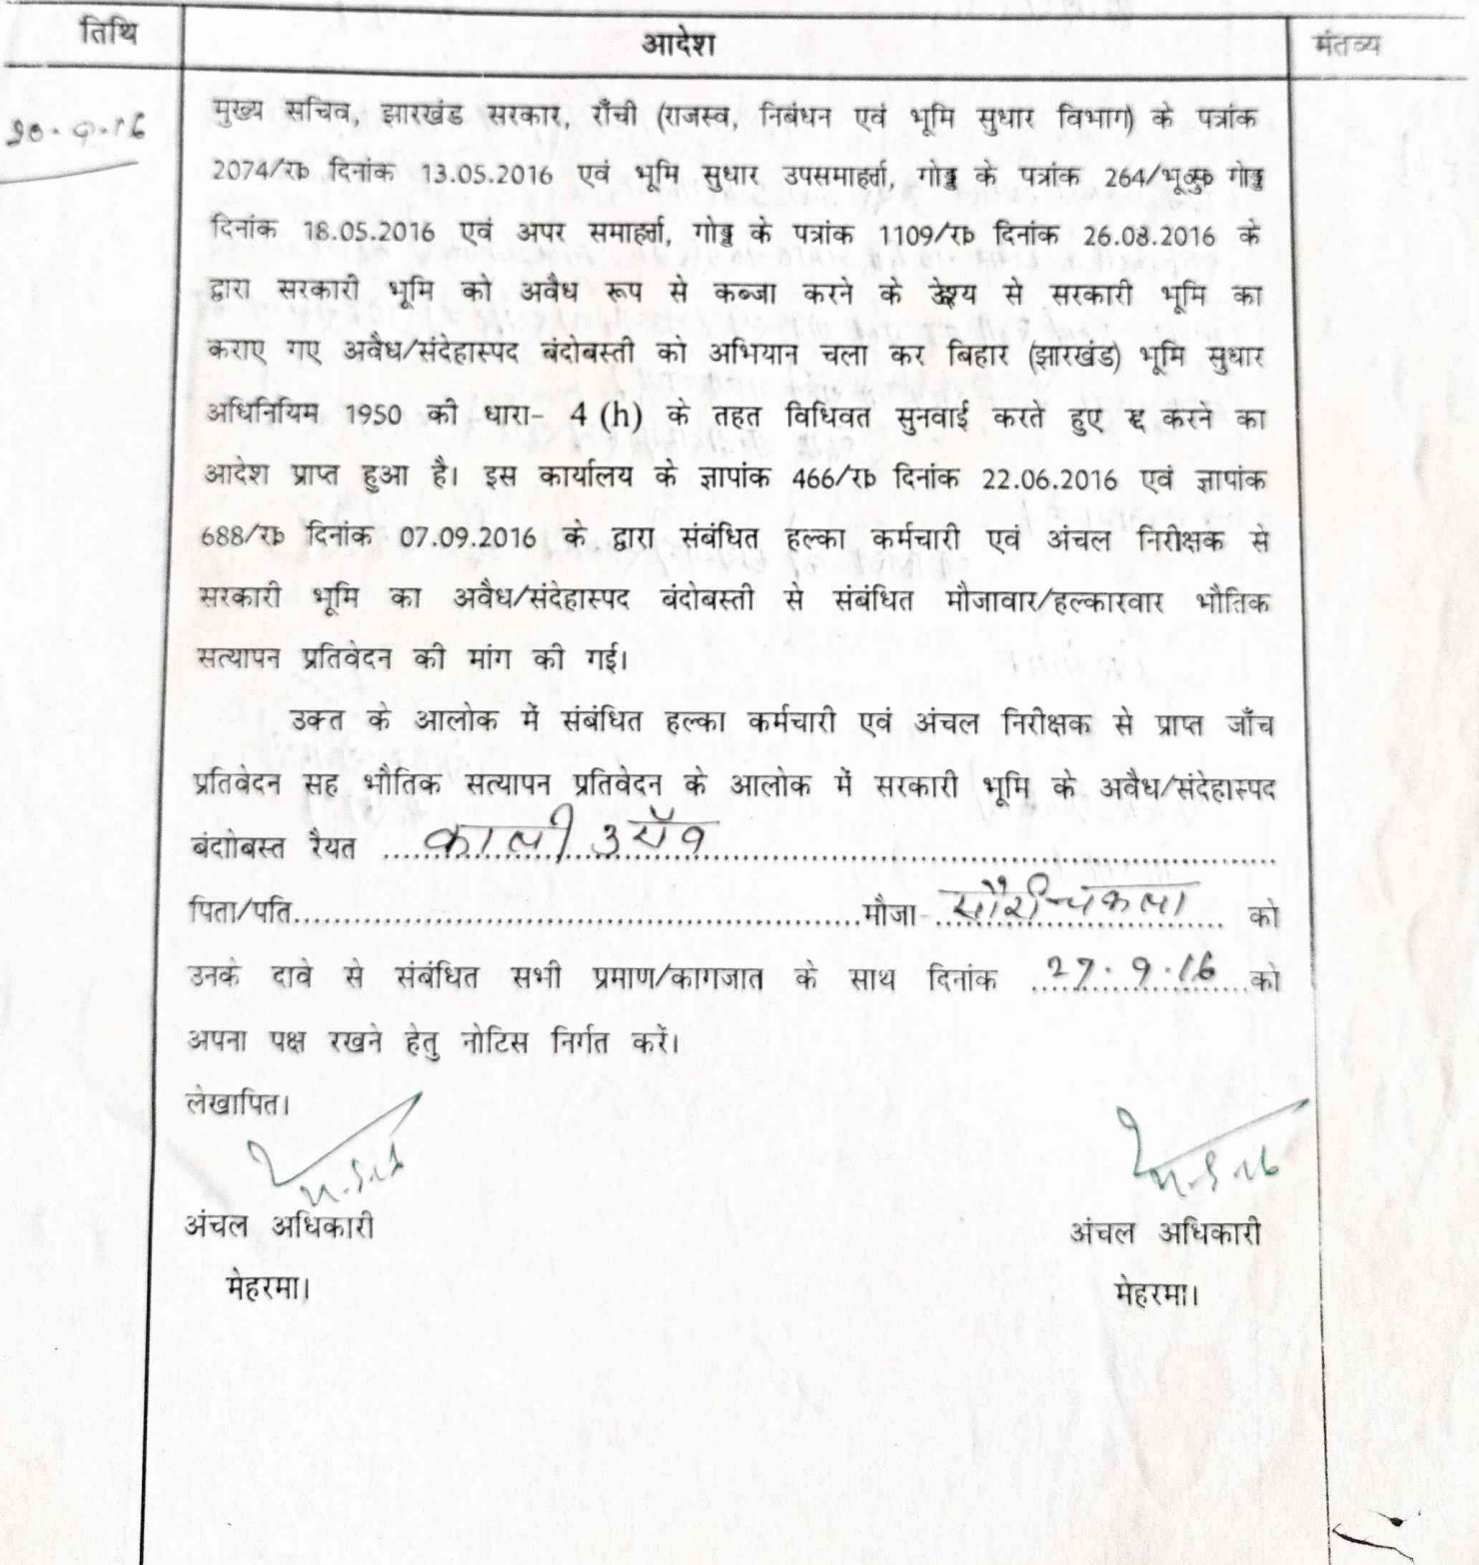 तिथि आदेश मंतव्य
20.9.16
मुख्य सचिव, झारखंड सरकार, राँची (राजस्व, निबंधन एवं भूमि सुधार विभाग) के पत्रांक
2074/रा० दिनांक 13.05.2016 एवं भूमि सुधार उपसमाहर्त्ता, गोड्डा के पत्रांक 264/भू०सु० गोड्डा
दिनांक 18.05.2016 एवं अपर समाहर्त्ता, गोड्डा के पत्रांक 1109/रा० दिनांक 26.08.2016 के
द्वारा सरकारी भूमि को अवैध रूप से कब्जा करने के उद्देश्य से सरकारी भूमि का
कराए गए अवैध/संदेहास्पद बंदोबस्ती को अभियान चला कर बिहार (झारखंड) भूमि सुधार
अधिनियिम 1950 की धारा- 4 (h) के तहत विधिवत सुनवाई करते हुए रद्द करने का
आदेश प्राप्त हुआ है। इस कार्यालय के ज्ञापांक 466/रा० दिनांक 22.06.2016 एवं ज्ञापांक
688/रा० दिनांक 07.09.2016 के द्वारा संबंधित हल्का कर्मचारी एवं अंचल निरीक्षक से
सरकारी भूमि का अवैध/संदेहास्पद बंदोबस्ती से संबंधित मौजावार/हल्कारवार भौतिक
सत्यापन प्रतिवेदन की मांग की गई।
उक्त के आलोक में संबंधित हल्का कर्मचारी एवं अंचल निरीक्षक से प्राप्त जाँच
प्रतिवेदन सह भौतिक सत्यापन प्रतिवेदन के आलोक में सरकारी भूमि के अवैध/संदेहास्पद
बंदाोबस्त रैयत काली
पिता/पति मौजा- सौरीचकला को
उनके दावे से संबंधित सभी प्रमाण/कागजात के साथ दिनांक 27.9.16 को
अपना पक्ष रखने हेतु नोटिस निर्गत करें।
लेखापित।
अंचल अधिकारी अंचल अधिकारी
मेहरमा। मेहरमा।